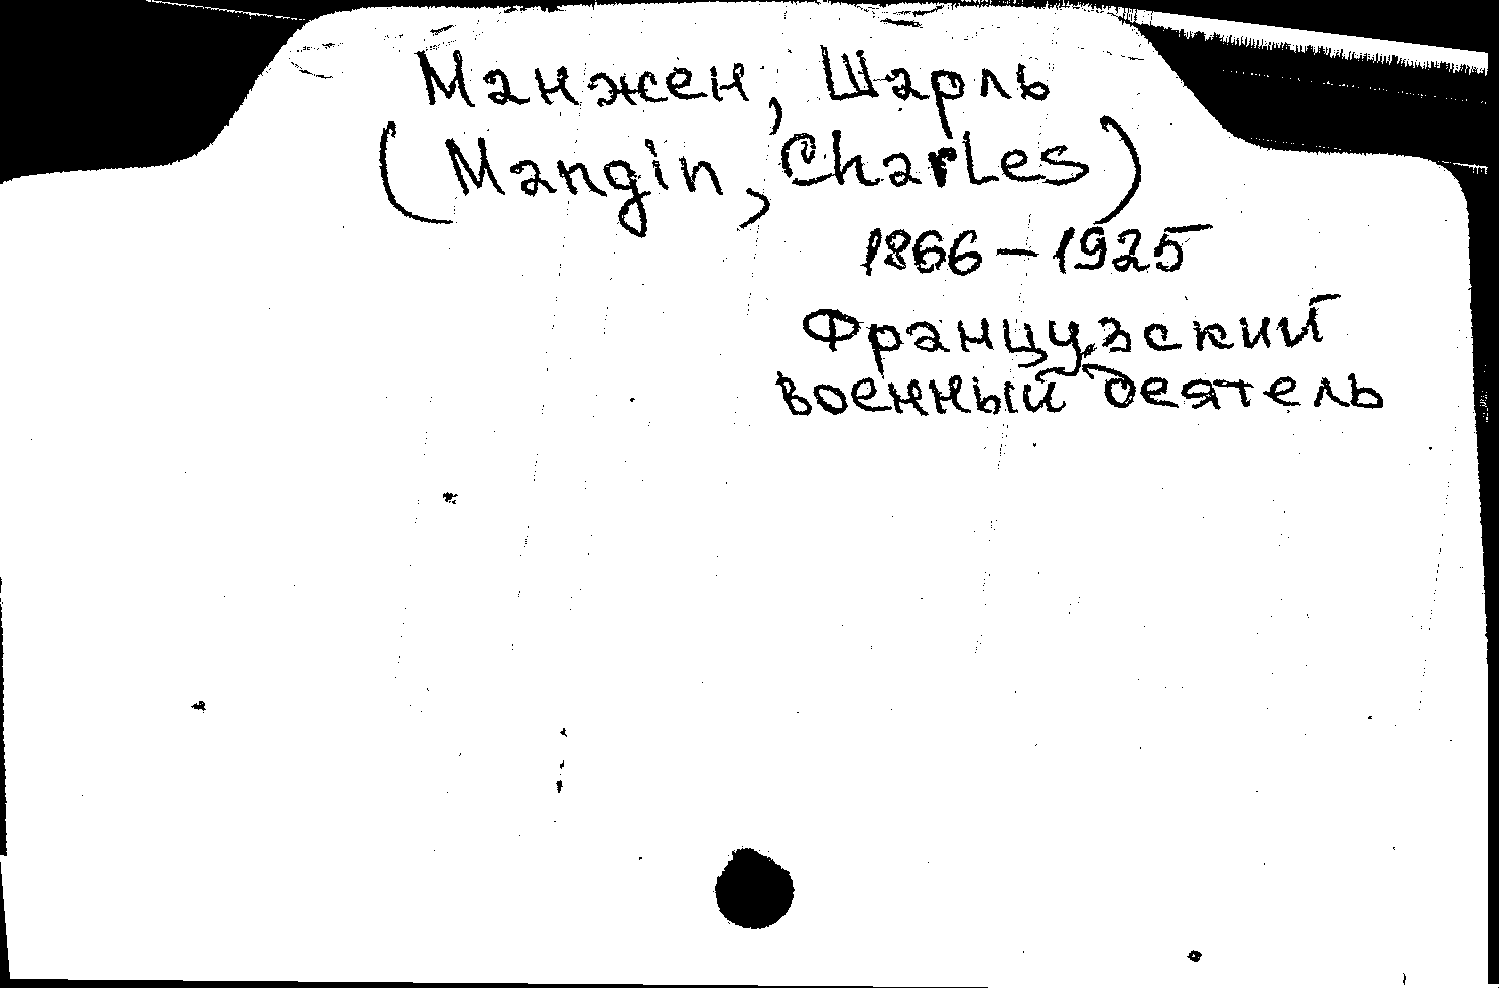 Манжен, Шарль
(Mangin, Charles)
1866 – 1925
Французский
военный деятель